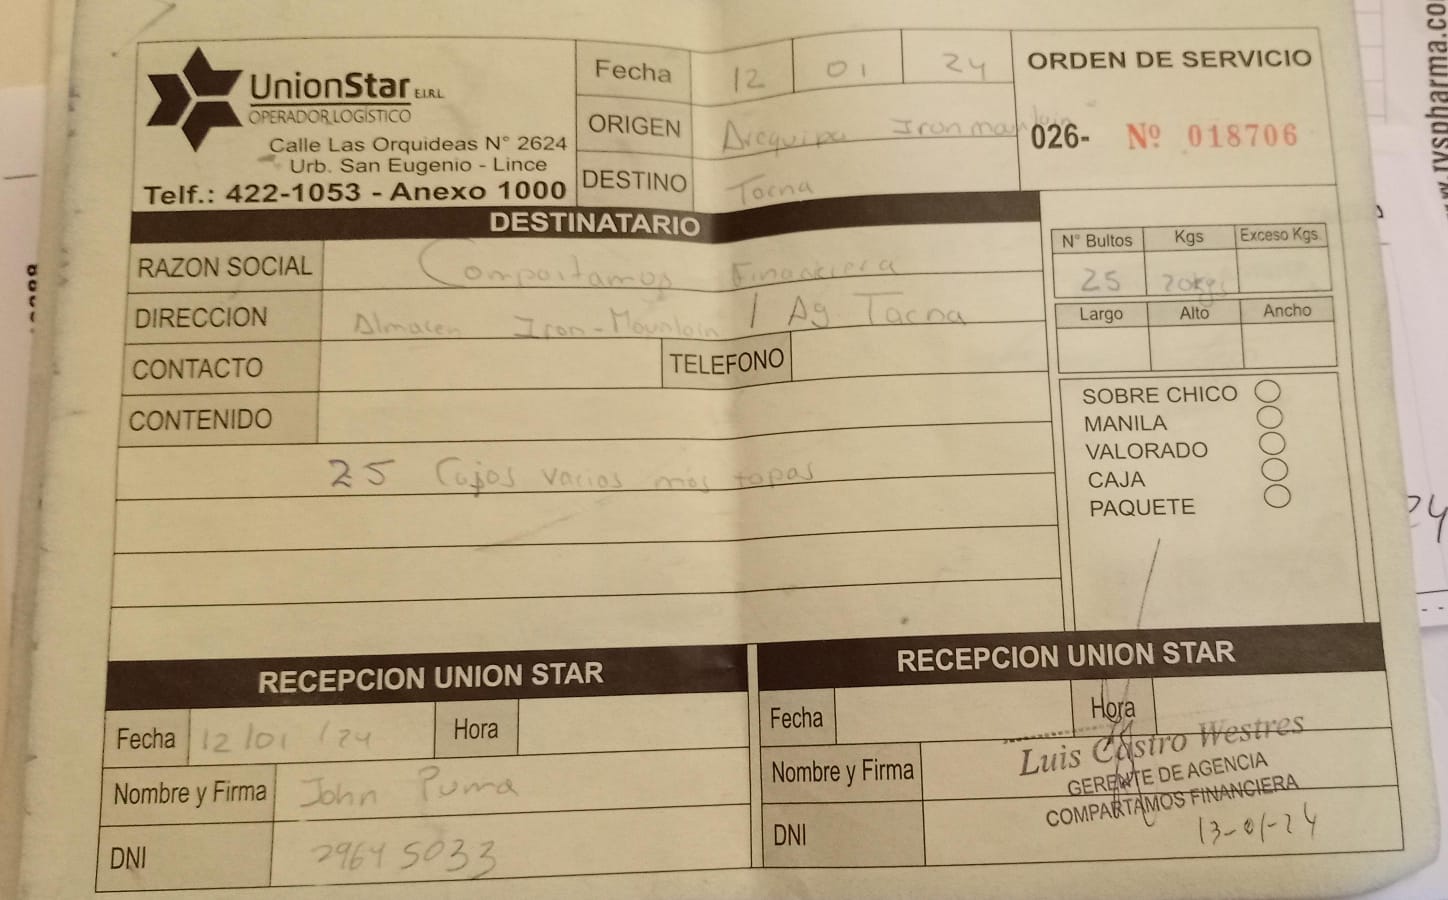 UnionStar E.I.R.L
OPERADOR LOGÍSTICO
Calle Las Orquideas N° 2624
Urb. San Eugenio - Lince
Telf.: 422-1053 - Anexo 1000
Fecha 12 01 24
ORIGEN Arequipa Iron mountain
DESTINO Tacna
ORDEN DE SERVICIO
026- Nº 018706
DESTINATARIO
RAZON SOCIAL Compartamos Financiera
DIRECCION Almacen Iron-Mountain / Ag Tacna
CONTACTO TELEFONO
CONTENIDO
25 Cajas varios más tapas
N° Bultos Kgs Exceso Kgs.
25 20kgs
Largo Alto Ancho
SOBRE CHICO
MANILA
VALORADO
CAJA
PAQUETE
RECEPCION UNION STAR
Fecha 12/01/24 Hora
Nombre y Firma John Puma
DNI 29645033
RECEPCION UNION STAR
Fecha Hora
Nombre y Firma
DNI
Luis Castro Westres
GERENTE DE AGENCIA
COMPARTAMOS FINANCIERA
13-01-24